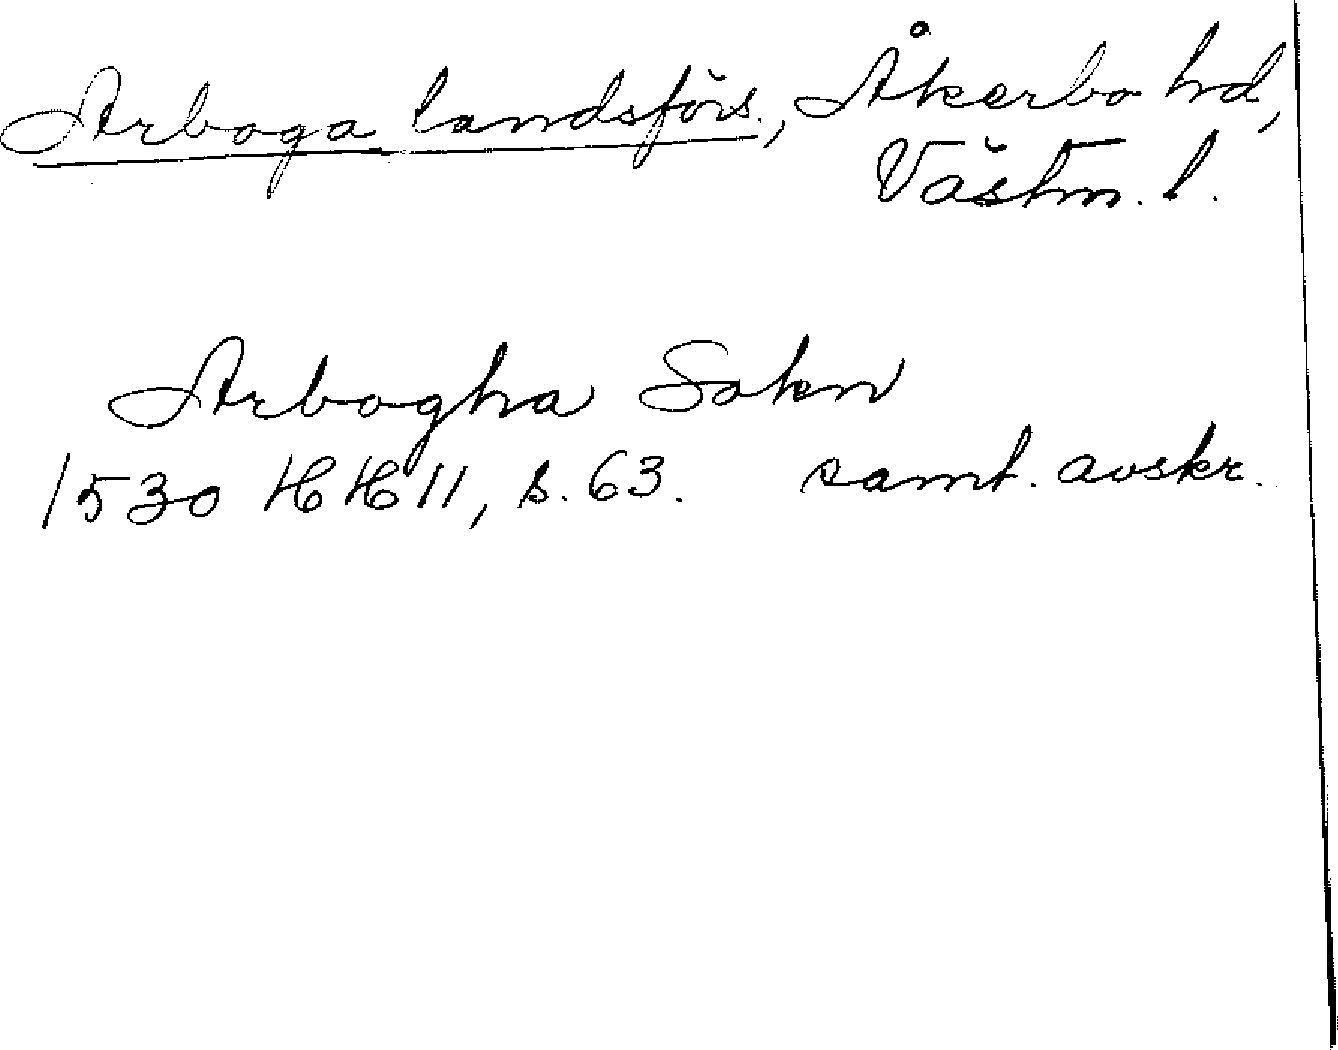 Arboga landsförs., Åkerbo hd,
Västm. l.
Arbogha Sokn
1530 HH 11, s. 63. samt. avskr.